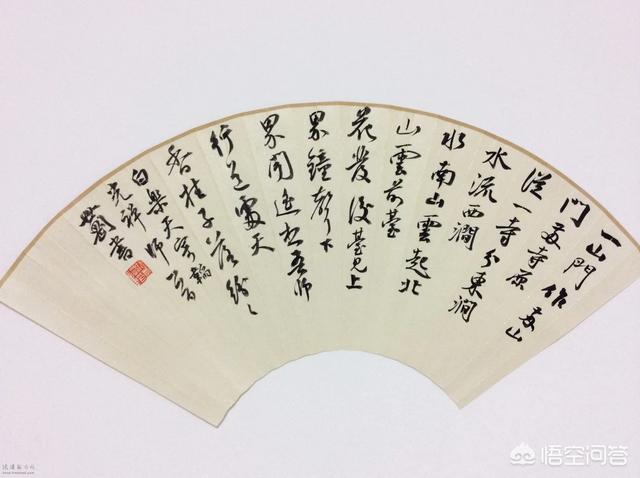 一山門作兩山
門兩寺原
從一寺分東澗
水流西澗
水南山雲起北
山雲前臺
花發後臺見上
界鐘聲下
界聞遙想吾師
行道處天
香桂子落紛々
白樂天寄韜
光禪師
書
悟空问答